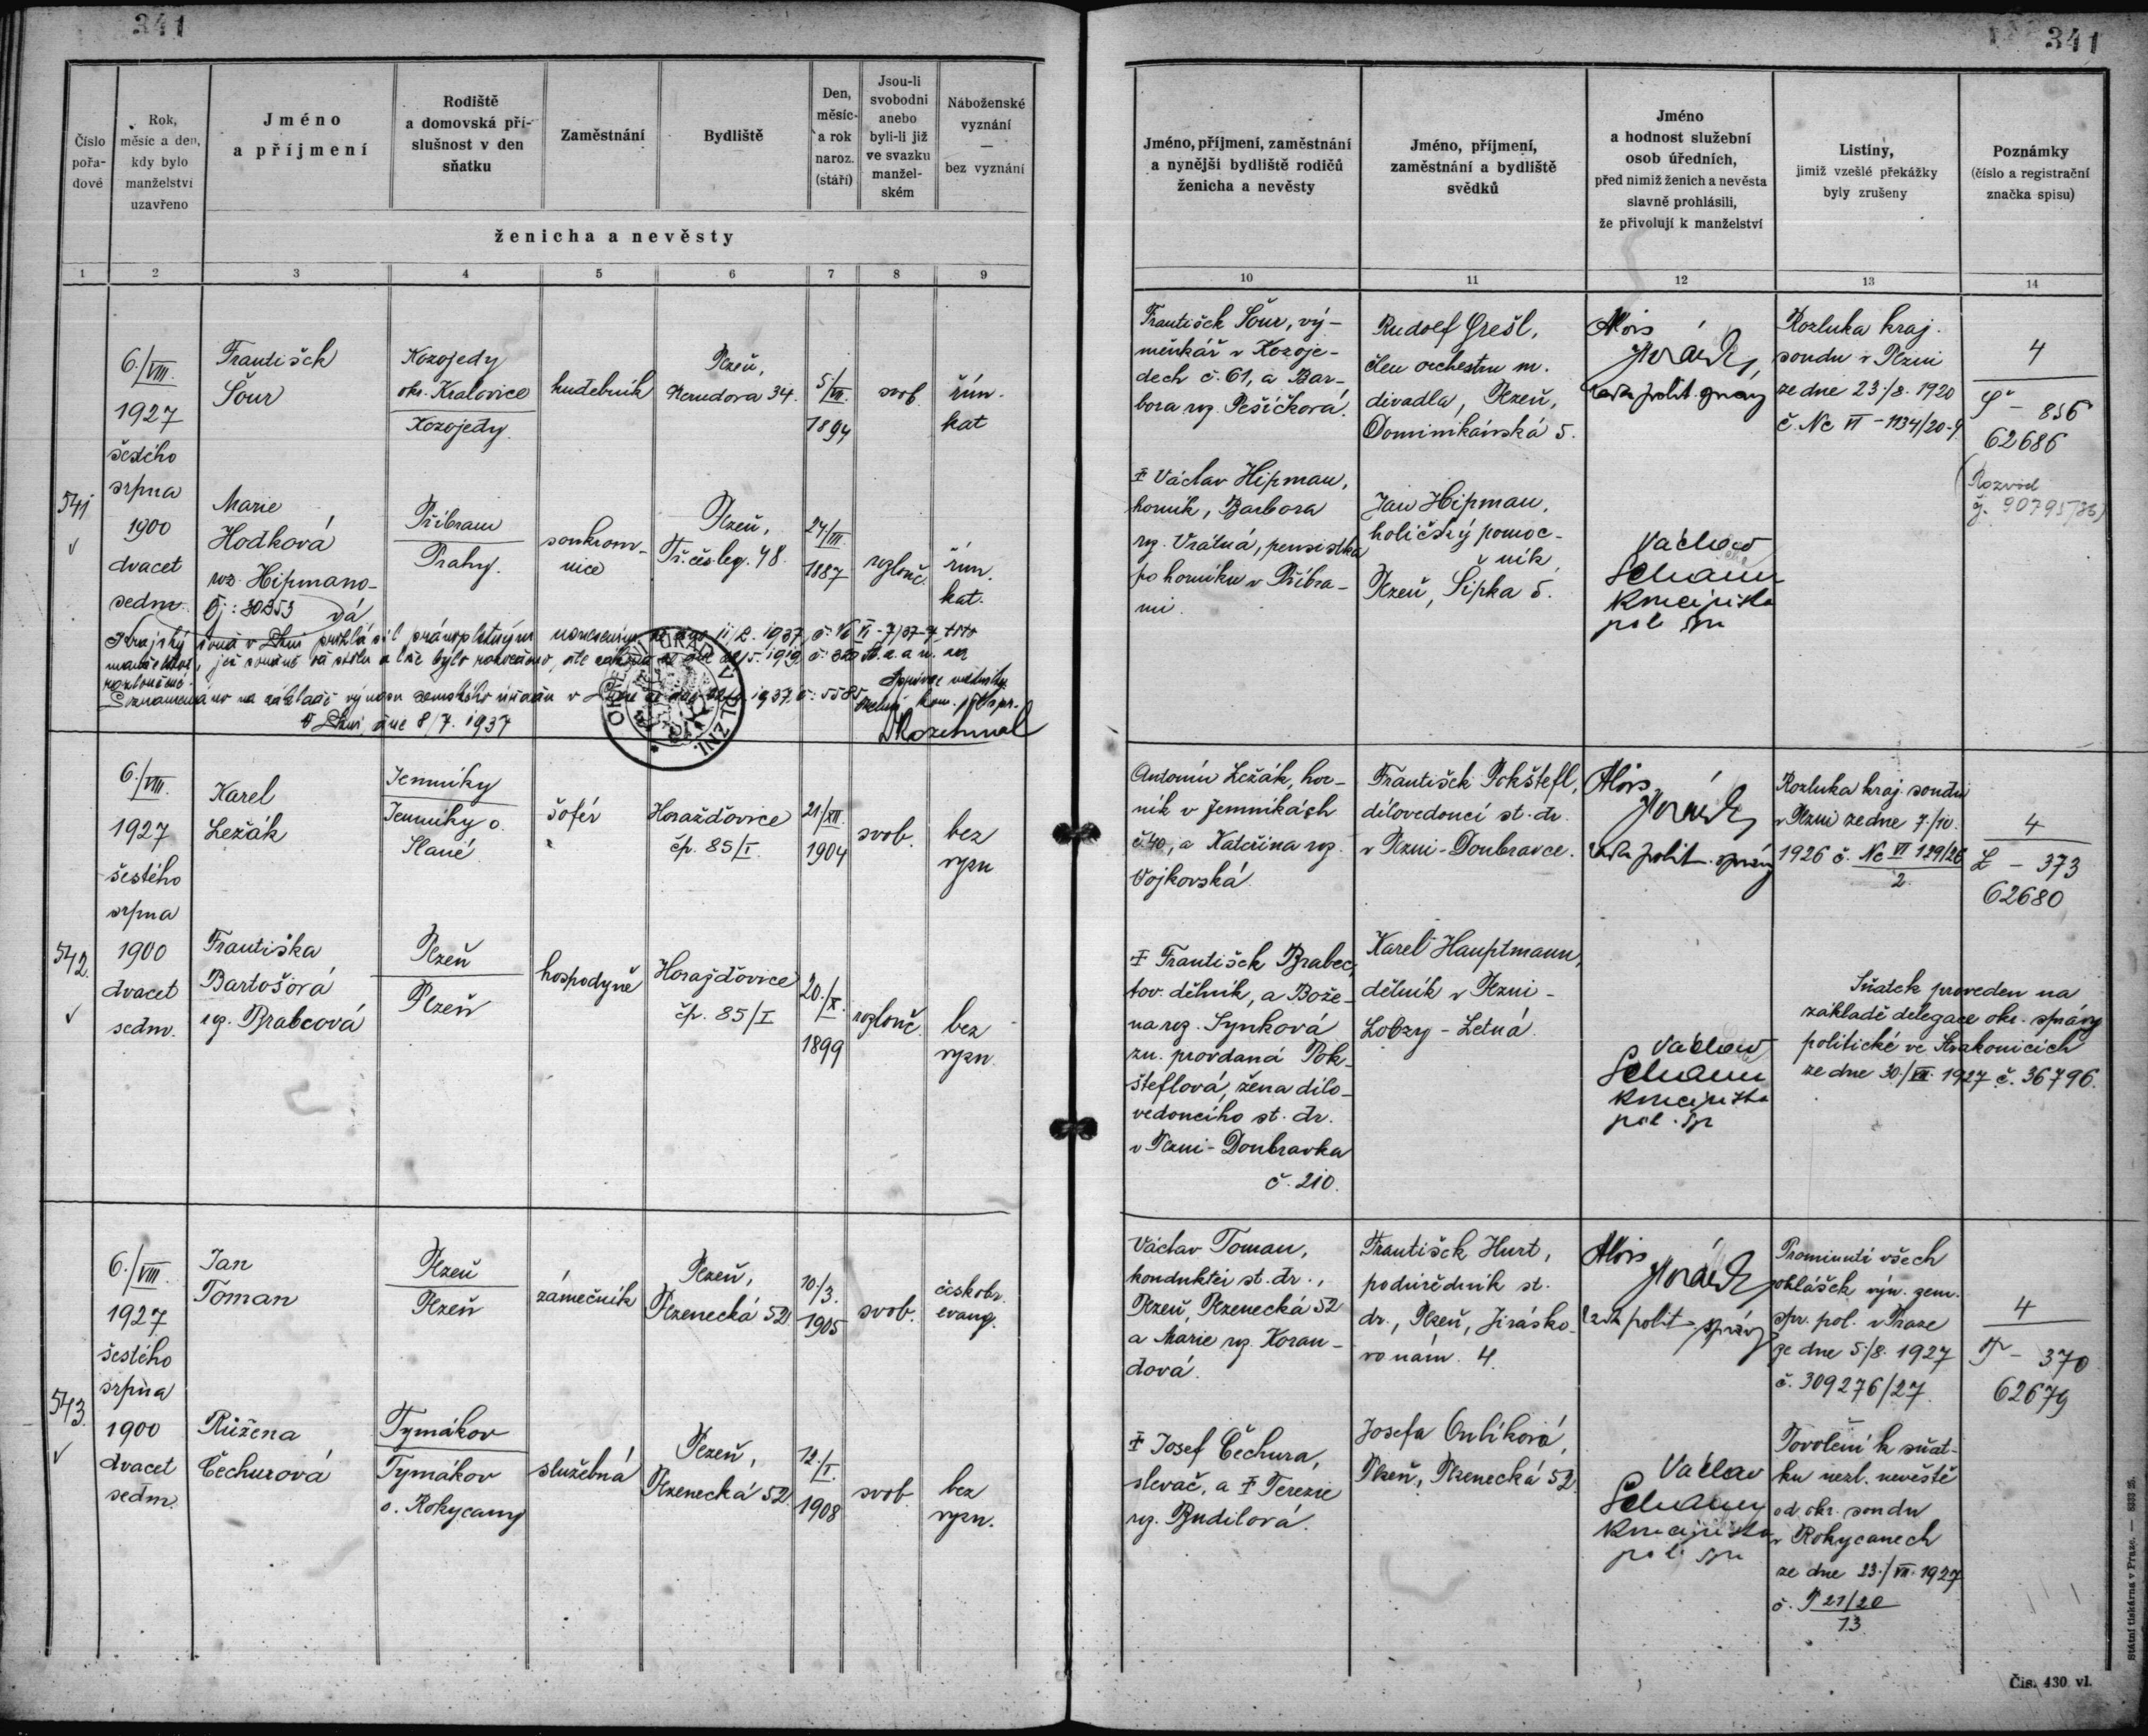 341
341
Číslo pořa- dové
Rok, měsíc a den, kdy bylo manželství uzavřeno
Jméno a příjmení
Rodiště a domovská pří- slušnost v den sňatku
Zaměstnání
Bydliště
Den, měsíc- a rok naroz. (stáří)
Jsou-li svobodni anebo byli-li již ve svazku manžel- ském
Náboženské vyznání — bez vyznání
ženicha a nevěsty
1 2 3 4 5 6 7 8 9
Jméno, příjmení, zaměstnání a nynější bydliště rodičů ženicha a nevěsty
Jméno, příjmení, zaměstnání a bydliště svědků
Jméno a hodnost služební osob úředních, před nimiž ženich a nevěsta slavně prohlásili, že přivolují k manželství
Listiny, jimiž vzešlé překážky byly zrušeny
Poznámky (číslo a registrační značka spisu)
10 11 12 13 14
541
6./VIII.
1927
šestého
srpna
1900
dvacet
sedm.
František
Šour
Kozojedy
okr. Kralovice
Kozojedy.
hudebník
Plzeň,
Nerudova 34.
5/VI.
1894
svob.
řím.
kat
Marie
Hodková
roz. Hipmano-
vá
Čj: 30253
Příbram
Prahy.
soukrom-
nice
Plzeň,
Tř. čs. leg. 48.
24/III.
1887
rozlouč.
řím.
kat.
Krajský soud v Plzni prohlásil
1937
V Plzni, dne 8/7. 1937
František Šour, vý-
měnkář v Kozoje-
dech č. 61, a Bar-
bora roz. Pešíčková.
Rudolf Grešl,
člen orchestru m.
divadla, Plzeň,
Dominikánská 5.
Alois
Horák,
rada polit. správy
Rozluka kraj.
soudu v Plzni
ze dne 23./8. 1920
č. Nc VI - 1134/20-9
4
Š - 856
62686
(Rozvod
čj. 90795/36)
† Václav Hipman,
horník, Barbora
roz. Vrátná, pensistka
po horníku v Příbra-
mi.
Jan Hipman,
holičský pomoc-
ník,
Plzeň, Šipka 5.
Václav
Schann
Koncipista
pol. spr
542.
6./VIII.
1927
šestého
srpna
1900
dvacet
sedm.
Karel
Ležák
Jemníky
Jemníky o.
Slané
šofér
Horažďovice
čp. 85/I.
21/XII.
1904
svob.
bez
vyzn
Františka
Bartošová
roz. Brabcová
Plzeň
Plzeň
hospodyně
Horažďovice
čp. 85/I
20./X.
1899
rozlouč.
bez
vyzn.
Antonín Ležák, hor-
ník v Jemníkách
č. 40, a Kateřina roz.
Vojkovská.
František Pokštefl,
dílovedoucí st. dr.
v Plzni-Doubravce.
Alois
Horák
rada polit. správy
Rozluka kraj. soudu
v Plzni ze dne 7./10.
1926 č. Nc VI 129/26
2.
4
L - 373
62680
† František Brabec,
tov. dělník, a Bože-
na roz. Synková
zn. provdaná Pok-
šteflová, žena dílo-
vedoucího st. dr.
v Plzni-Doubravka
č. 210.
Karel Hauptmann,
dělník v Plzni-
Lobzy-Letná.
Václav
Schann
Koncipista
pol. spr
Sňatek proveden na
základě delegace okr. správy
politické ve Strakonicích
ze dne 30./VII. 1927 č. 36796.
543.
6./VIII.
1927
šestého
srpna
1900
dvacet
sedm.
Jan
Toman
Plzeň
Plzeň
zámečník
Plzeň,
Plzenecká 52.
10/3.
1905
svob.
čskobr.
evang.
Růžena
Čechurová
Tymákov
Tymákov
o. Rokycany
služebná
Plzeň,
Plzenecká 52.
12./I.
1908
svob.
bez
vyzn.
Václav Toman,
konduktér st. dr.,
Plzeň, Plzenecká 52
a Marie roz. Koran-
dová.
František Hurt,
podúředník st.
dr., Plzeň, Jirásko-
vo nám. 4.
Alois
Horák
rada polit. správy
Prominutí všech
ohlášek výn. zem.
spr. pol. v Praze
ze dne 5./8. 1927
č. 309276/27.
4
T - 370
62679
† Josef Čechura,
slevač, a † Terezie
roz. Budilová.
Josefa Orlíková,
Plzeň, Plzenecká 52.
Václav
Schann
Koncipista
pol. spr
Povolení k sňat-
ku nezl. nevěstě
od okr. soudu
v Rokycanech
ze dne 23./VII. 1927
č. P 21/20
13.
Státní tiskárna v Praze. — 8333 25.
Čís. 430 vl.